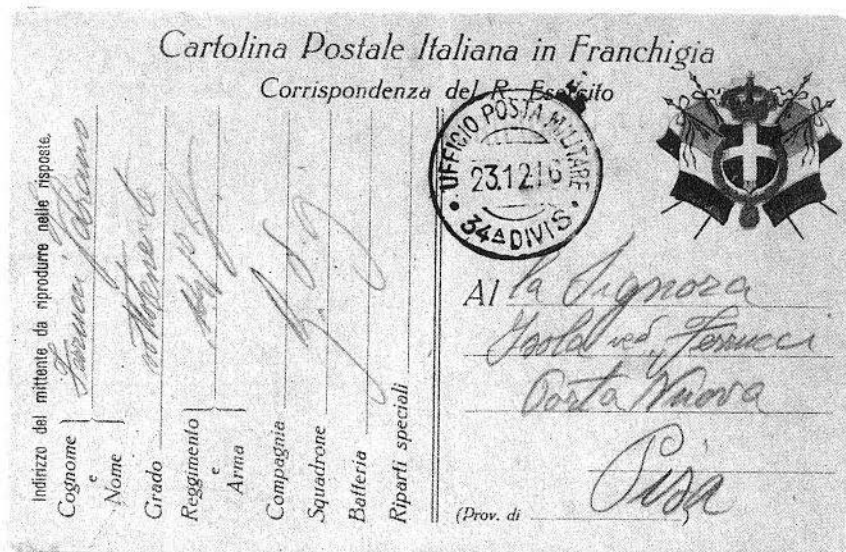 Cartolina Postale Italiana in Franchigia
Corrispondenza del R. Esercito
UFFICIO POSTA MILITARE
23.12.16
34ᴬ DIVIS.
Indirizzo del mittente da riprodurre nelle risposte.
Cognome e Nome Ferrucci
Grado sottotenente
Reggimento e Arma
Compagnia
Squadrone
Batteria
Riparti speciali
Al la Signora
Isola ved. Ferrucci
Porta Nuova
Pisa
(Prov. di